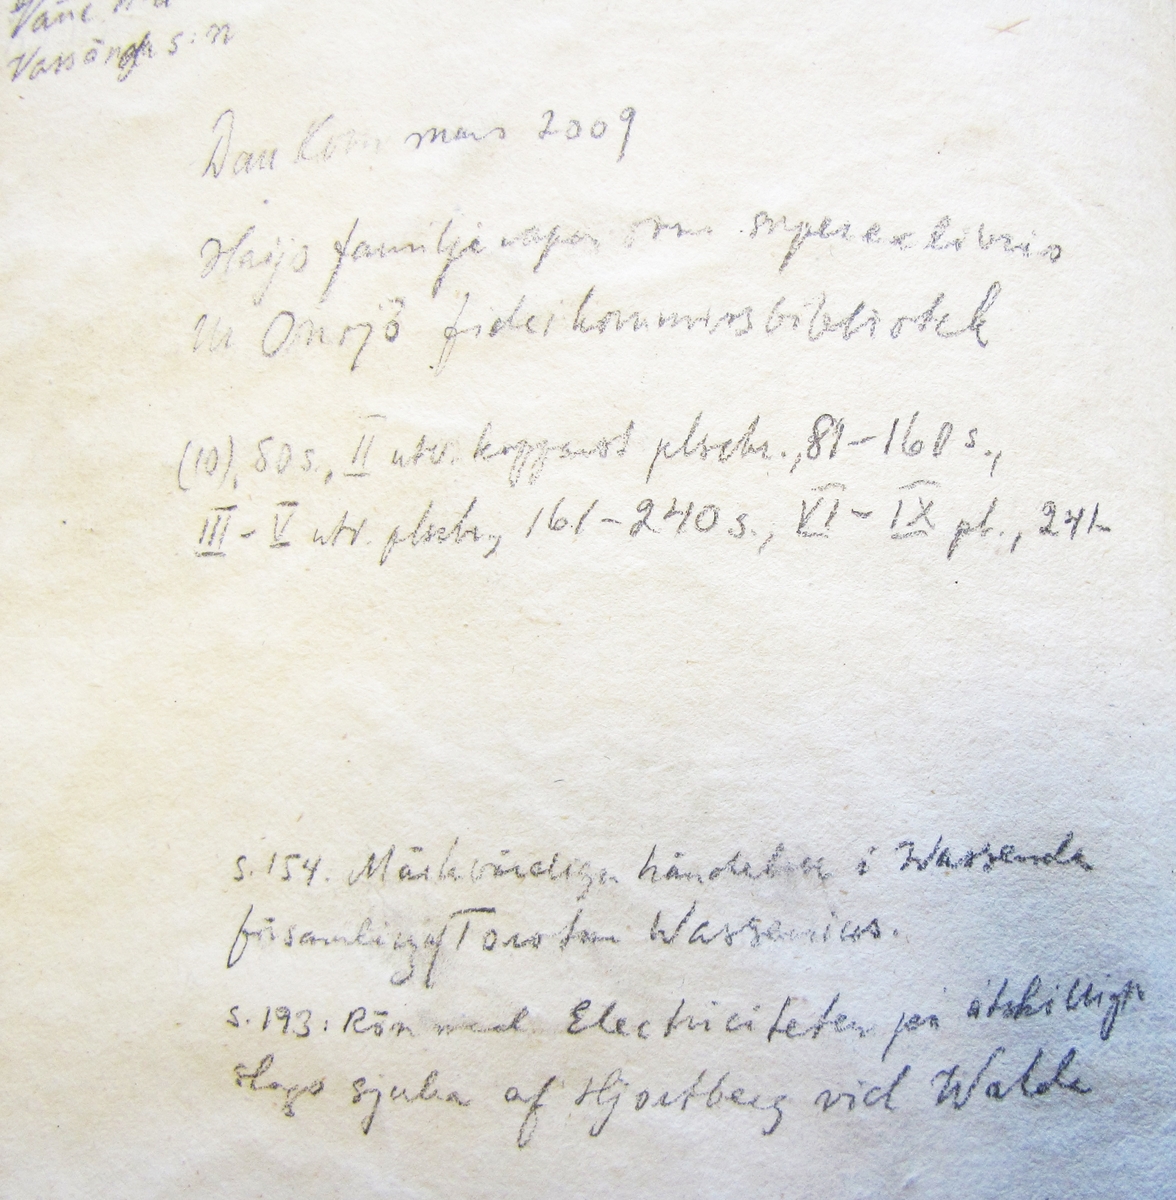 Väne
Vassända s:n
Dan Korn mars 2009
familjevapen som superexlibris
ur Onsjö fideikommissbibliotek
(10), 80 s., II utv. kopparst plscher., 81-160 s.,
III-V utv. plscher, 161-240 s., VI-IX pl., 241-
s. 154. Märkvärdiga händelser i Wassenda
församling af Torsten Wassenius.
s. 193: Rön med Electriciteten på åtskilliga
slags sjuka af Hjortberg vid Walda